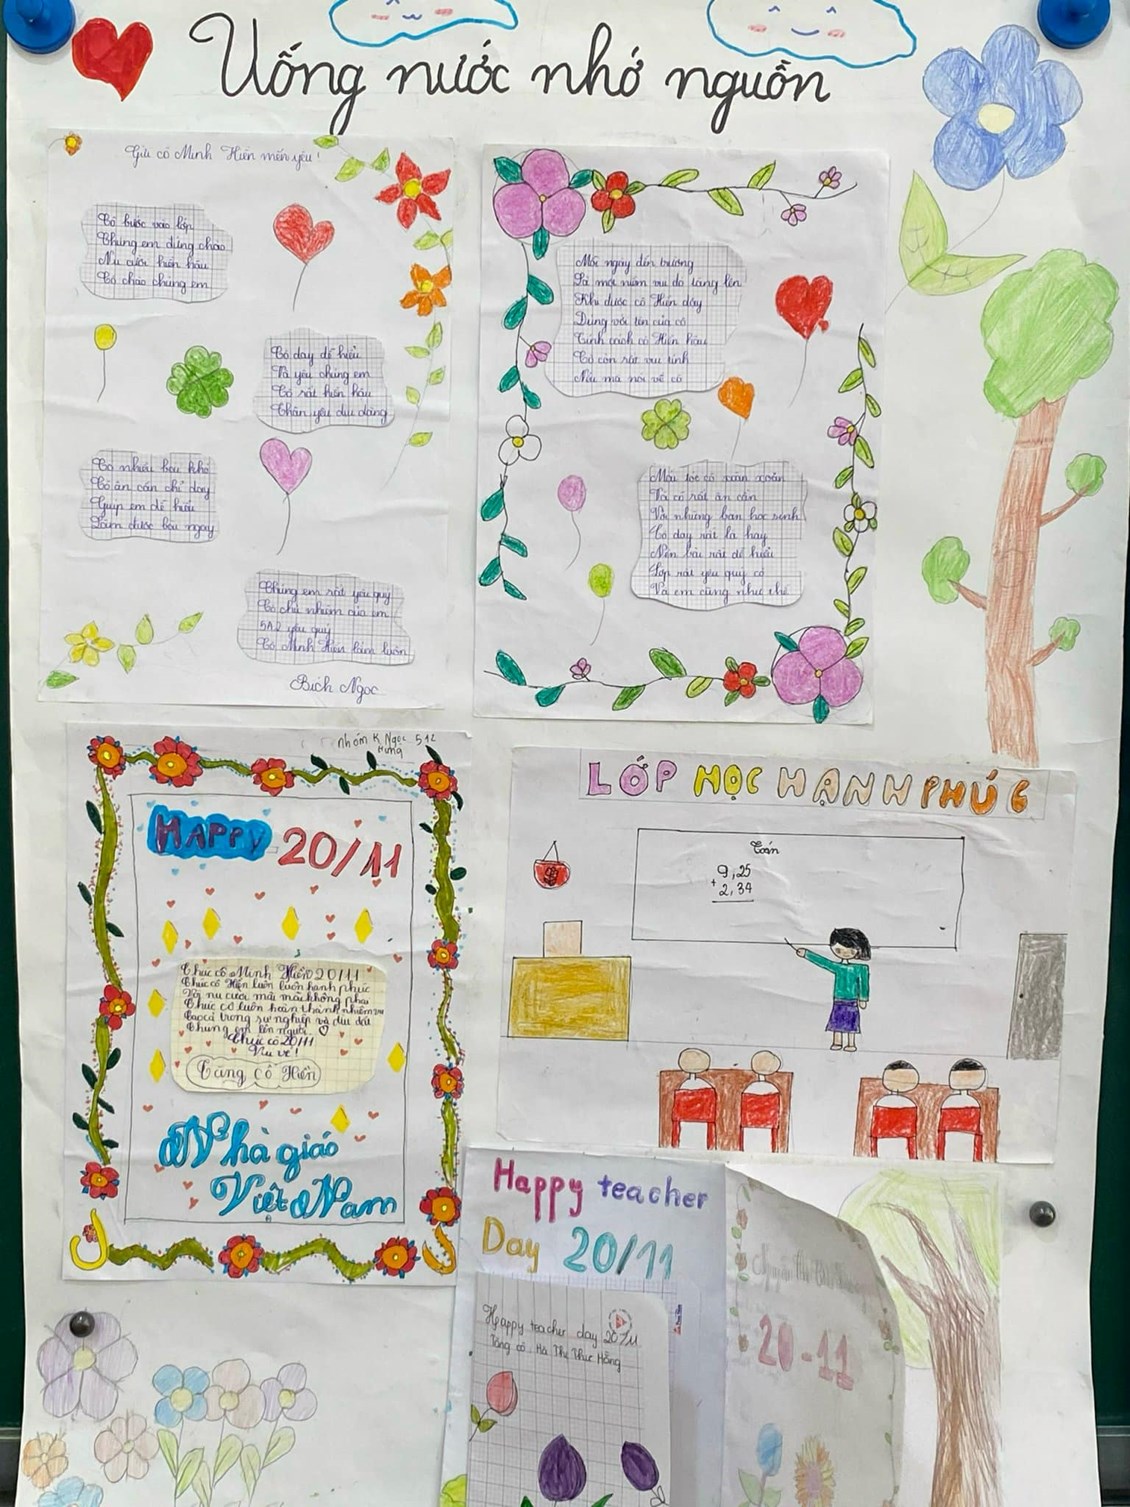 Uống nước nhớ nguồn
Gửi cô Minh Hiền mến yêu!
Cô bước vào lớp
Chúng em đứng chào
Nụ cười hiền hậu
Cô chào chúng em
Cô dạy dễ hiểu
Và yêu chúng em
Cô rất hiền hậu
Thân yêu dịu dàng
Cô ân cần chỉ dạy
Giúp em dễ hiểu
Làm được bài ngay
Chúng em rất yêu quý
Cô chủ nhiệm của em
5A2 yêu quý
Cô Minh Hiền lắm luôn
Bích Ngọc
Mỗi ngày đến trường
Là một niềm vui đó tăng lên
Khi được cô Hiền dạy
Đúng với tên của cô
Tính cách cô Hiền hậu
Cô còn rất vui tính
Nếu mà nói về cô
Mái tóc cô xoăn xoăn
Và cô rất ân cần
Với những bạn học sinh
Cô dạy rất là hay
Nên bài rất dễ hiểu
Lớp rất yêu quý cô
Và em cũng như thế
nhóm K Ngọc 512
Hưng
HAPPY 20/11
Chúc cô Minh Hiền 20/11
Chúc cô Hiền luôn luôn hạnh phúc
Với nụ cười mãi mãi không phai
Chúc cô luôn hoàn thành nhiệm vụ
Cao cả trong sự nghiệp và dìu dắt
Chúng em lên người ♡
Chúc cô 20/11
Vui vẻ!
Tặng cô Hiền
Nhà giáo
Việt Nam
LỚP HỌC HẠNH PHÚC
Toán
9,25
+
2,34
Happy teacher
Day 20/11
Happy teacher day 20/11
Tặng cô Hà Thị Thuý Hằng
20-11